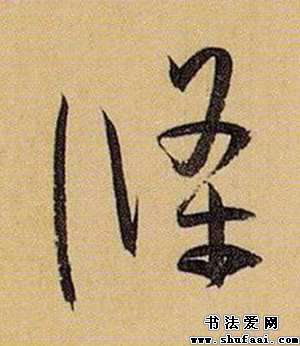 條
书法爱网
www.shufaai.com